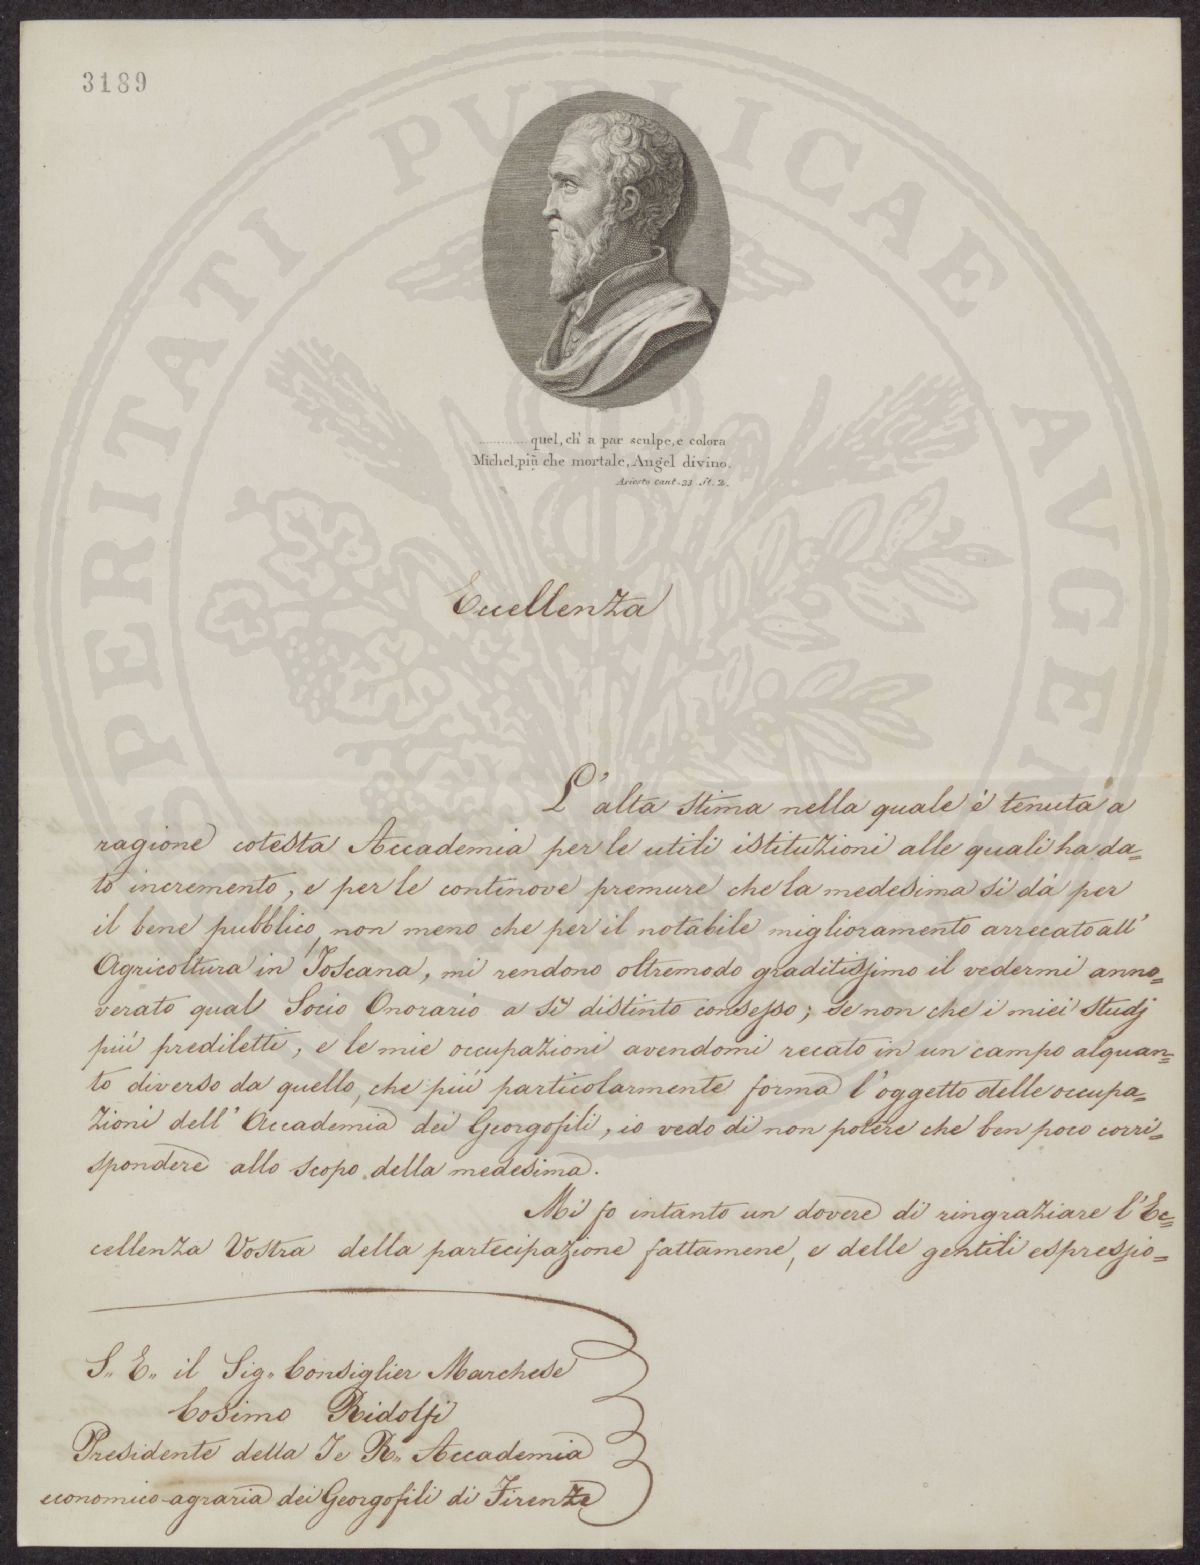 3189
PROSPERITATI PUBLICAE AVGEN
............quel, ch' a par sculpe, e colora
Michel, più che mortale, Angel divino.
Ariosto Cant. 33. St. 2.
Eccellenza
L'alta stima nella quale è tenuta a
ragione cotesta Accademia per le utili istituzioni alle quali ha da=
to incremento, e per le continove premure che la medesima si dà per
il bene pubblico, non meno che per il notabile miglioramento arrecato all'
Agricoltura in Toscana, mi rendono oltremodo graditissimo il vedermi anno=
verato qual Socio Onorario a sì distinto consesso; se non che i miei studj
più prediletti, e le mie occupazioni avendomi recato in un campo alquan=
to diverso da quello, che più particolarmente forma l'oggetto delle occupa=
zioni dell'Accademia dei Georgofili, io vedo di non potere che ben poco corri=
spondere allo scopo della medesima.
Mi fo intanto un dovere di ringraziare l'Ec=
cellenza Vostra della partecipazione fattamene, e delle gentili espressio=
S. E. il Sig. Consiglier Marchese
Cosimo Ridolfi
Presidente della I e R. Accademia
economico-agraria dei Georgofili di Firenze